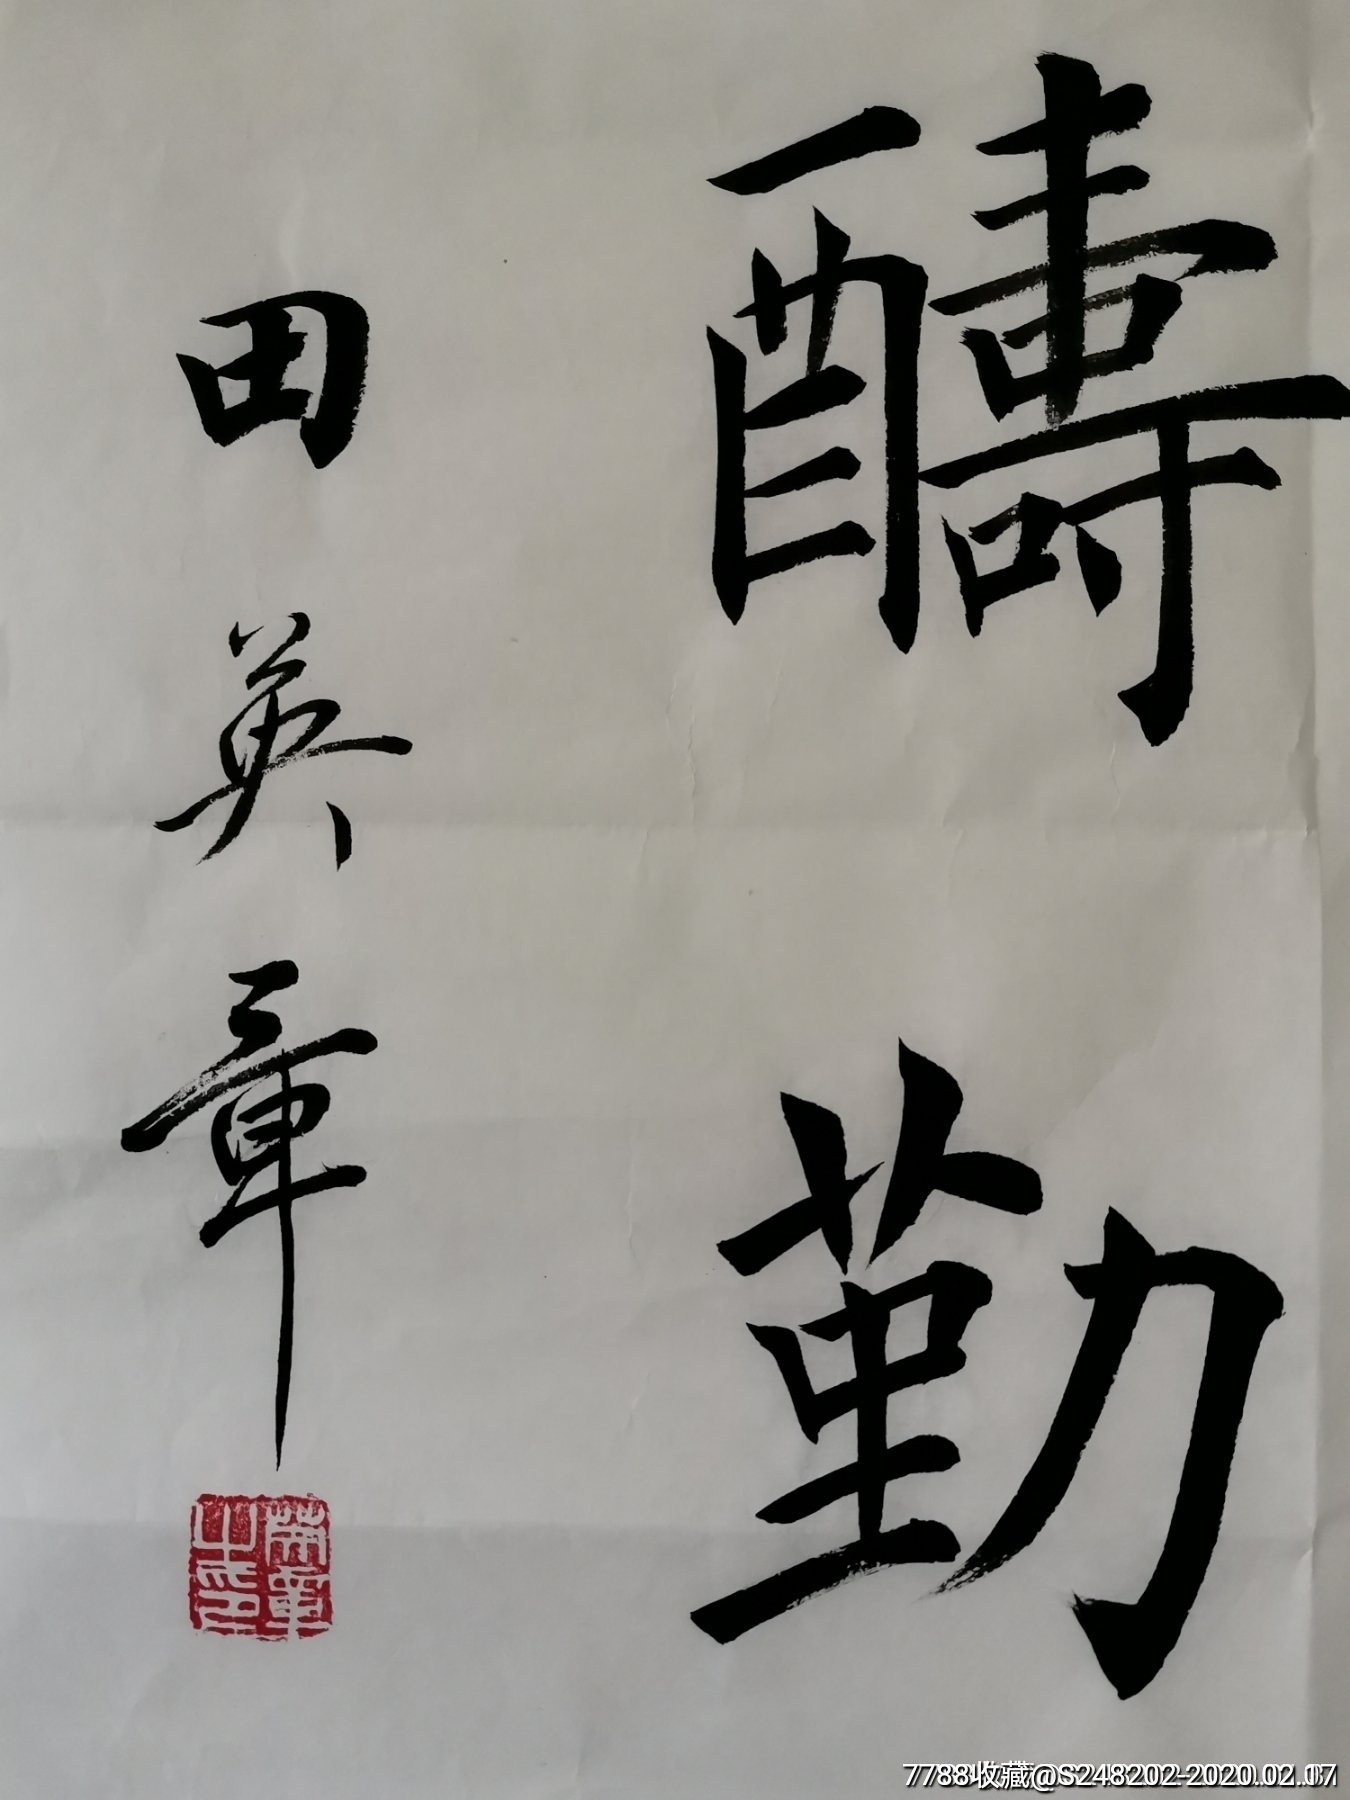 醻勤
田英章
7788收藏@S248202-2020.02.07